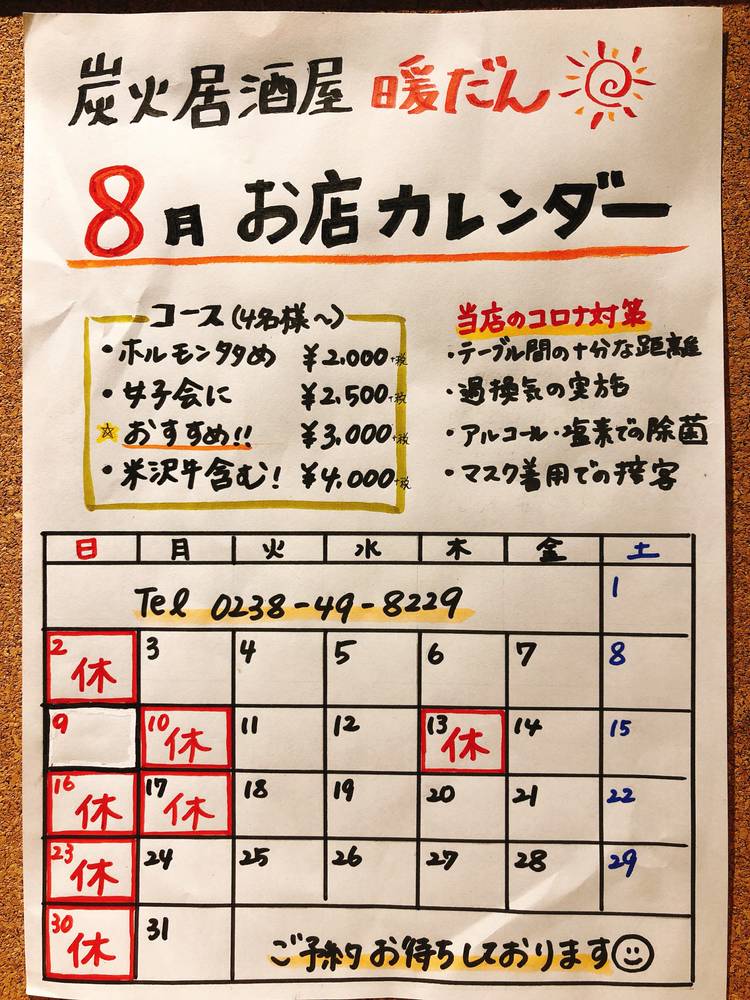 炭火居酒屋 暖だん
8月 お店カレンダー
コース(4名様～)
・ホルモンタタめ ¥2,000+税
・女子会に ¥2,500+税
☆おすすめ!! ¥3,000+税
・米沢牛含む! ¥4,000+税
当店のコロナ対策
・テーブル間の十分な距離
・過換気の実施
・アルコール・塩素での除菌
・マスク着用での接客
日 月 火 水 木 金 土
Tel 0238-49-8229 1
2 休 3 4 5 6 7 8
9 10 休 11 12 13 休 14 15
16 休 17 休 18 19 20 21 22
23 休 24 25 26 27 28 29
30 休 31 ご予約お待ちしております